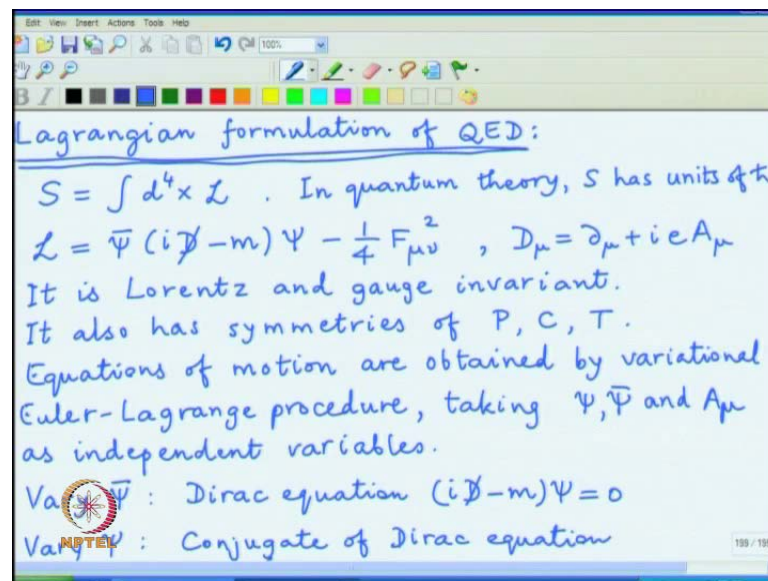 Edit View Insert Actions Tools Help
100%
B I
Lagrangian formulation of QED:
S = ∫ d⁴x ℒ . In quantum theory, S has units of ħ
ℒ = Ψ̄ (i D̸ - m) Ψ - 1/4 F_μν² , D_μ = ∂_μ + i e A_μ
It is Lorentz and gauge invariant.
It also has symmetries of P, C, T.
Equations of motion are obtained by variational
Euler-Lagrange procedure, taking Ψ, Ψ̄ and A_μ
as independent variables.
Vary Ψ̄ : Dirac equation (i D̸ - m) Ψ = 0
Vary Ψ : Conjugate of Dirac equation
NPTEL
199 / 199